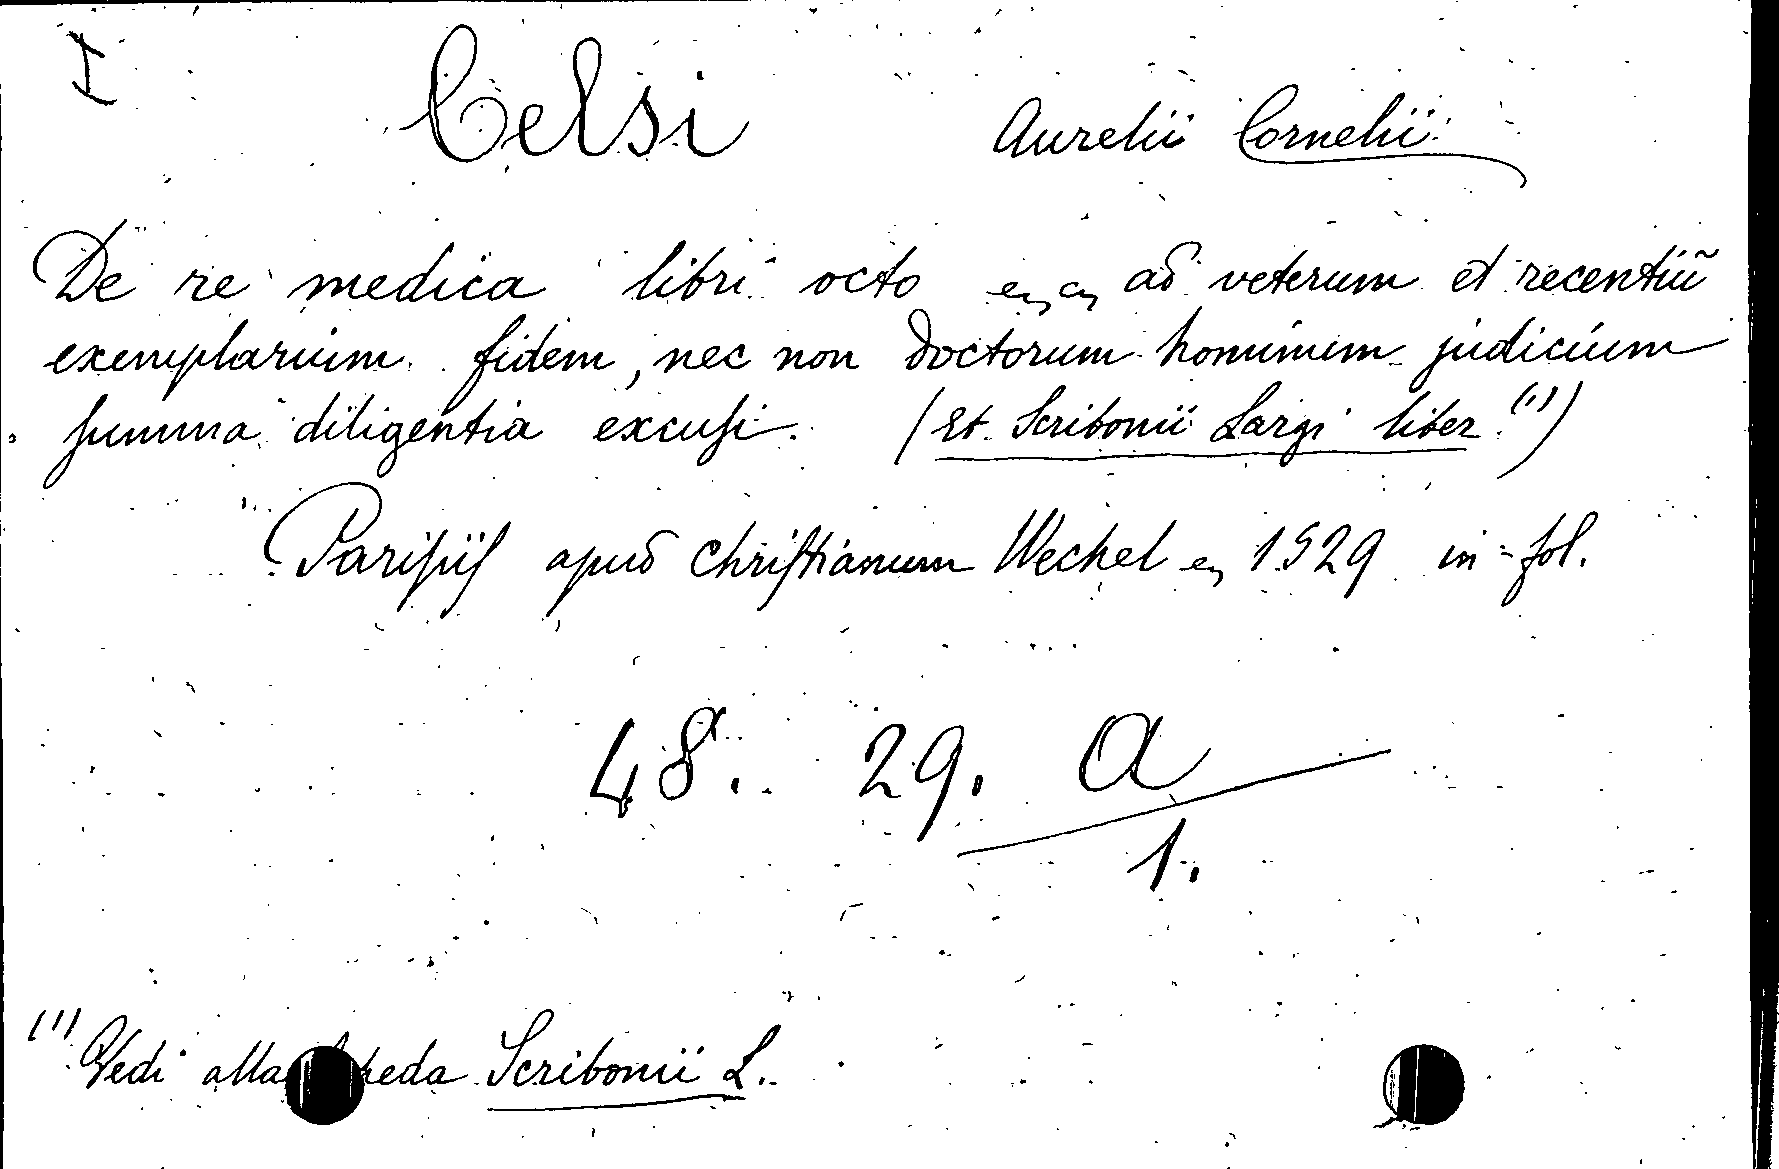 I
Celsi Aurelii Cornelii
De re medica libri octo ad veterum et recentiũ
exemplarium fidem, nec non doctorum hominum judicium
summa diligentia excusi. (Et Scribonii Largi liber (1))
Parisiis apud Christianum Wechel 1529 in-fol.
48. 29. A
1.
(1) Vedi alla scheda Scribonii L.